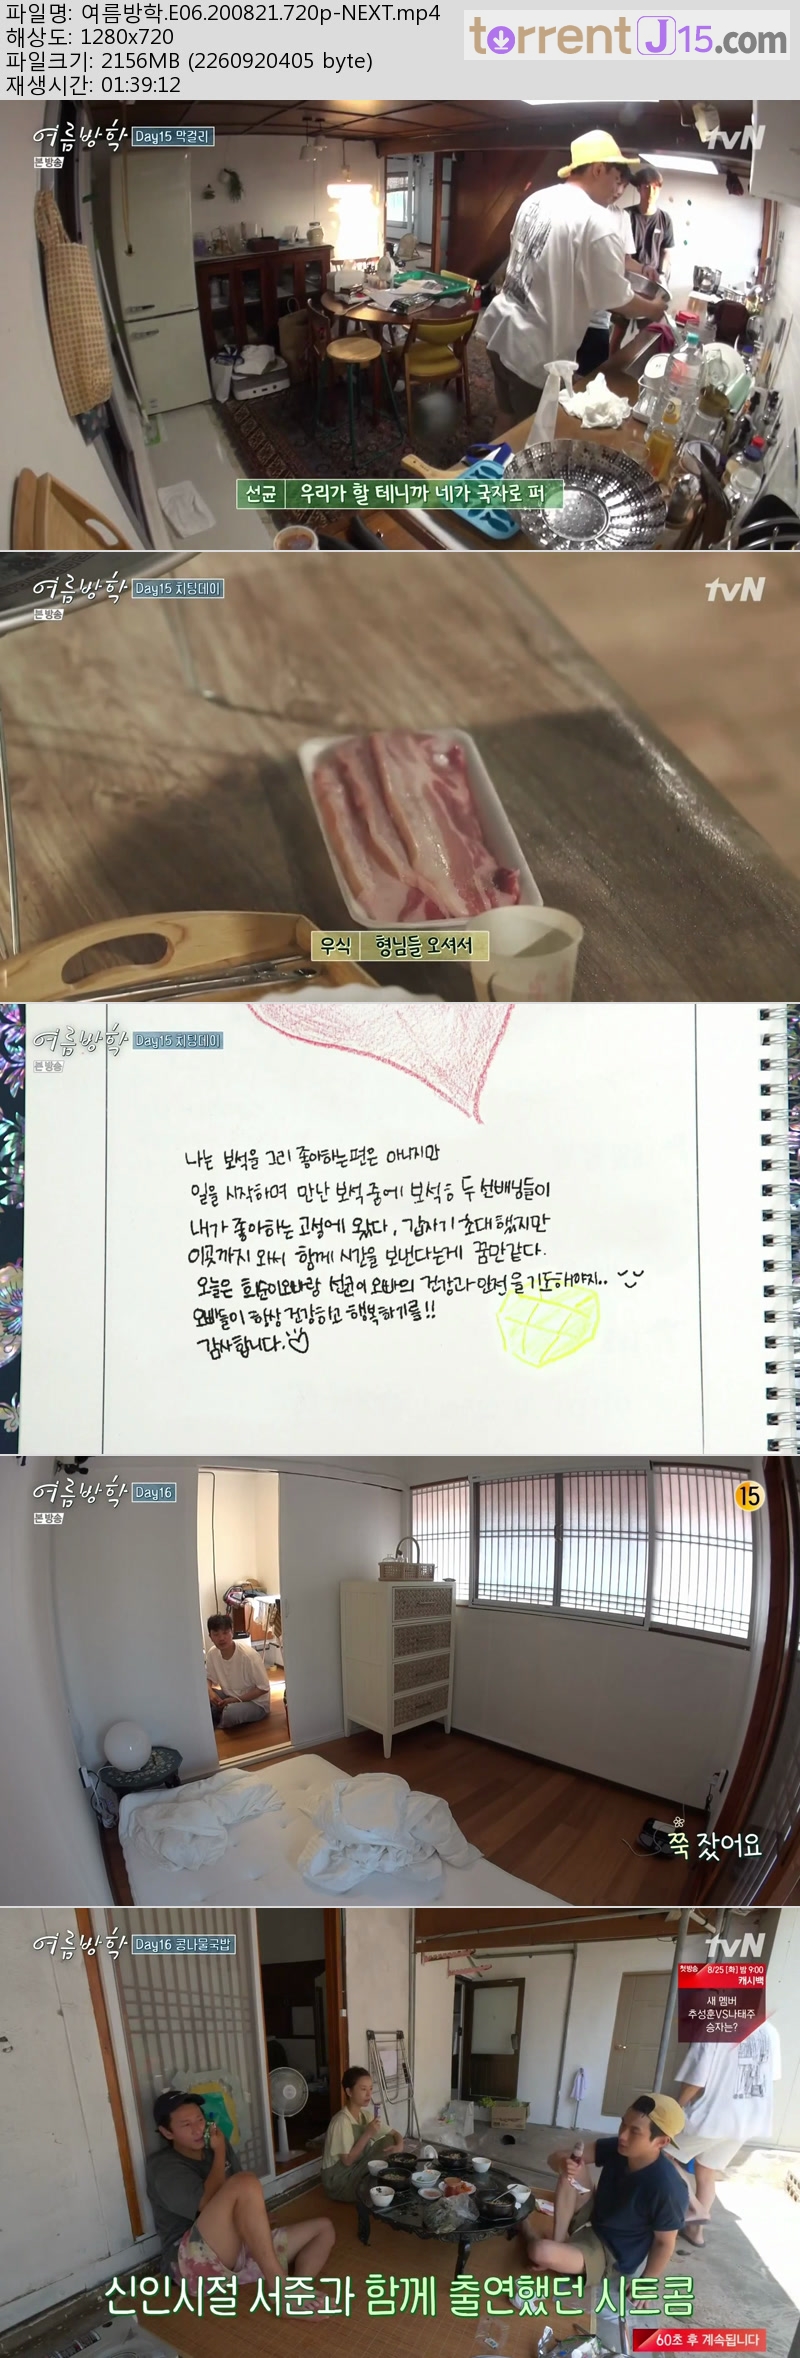 파일명: 여름방학.E06.200821.720p-NEXT.mp4
해상도: 1280x720
파일크기: 2156MB (2260920405 byte)
재생시간: 01:39:12
torrentJ15.com
여름방학 Day15 막걸리
본 방송
tvN
선균 우리가 할 테니까 네가 국자로 퍼
여름방학 Day15 치팅데이
본 방송
tvN
우식 형님들 오셔서
여름방학 Day15 치팅데이
본 방송
나는 보석을 그리 좋아하는편은 아니지만
일을 시작하며 만난 보석 중에 보석인 두 선배님들이
내가 좋아하는 고성에 왔다. 갑자기 초대했지만
이곳까지 와서 함께 시간을 보낸다는게 꿈만같다.
오늘은 희순이오빠랑 선균이 오빠의 건강과 안전을 기도해야지..
오빠들이 항상 건강하고 행복하기를!!
감사합니다.
여름방학 Day16
본 방송
15
쭉 잤어요
여름방학 Day16 콩나물국밥
tvN
첫방송 8/25 [화] 밤 9:00
캐시백
새 멤버
추성훈VS나태주
승자는?
신인시절 서준과 함께 출연했던 시트콤
60초 후 계속됩니다